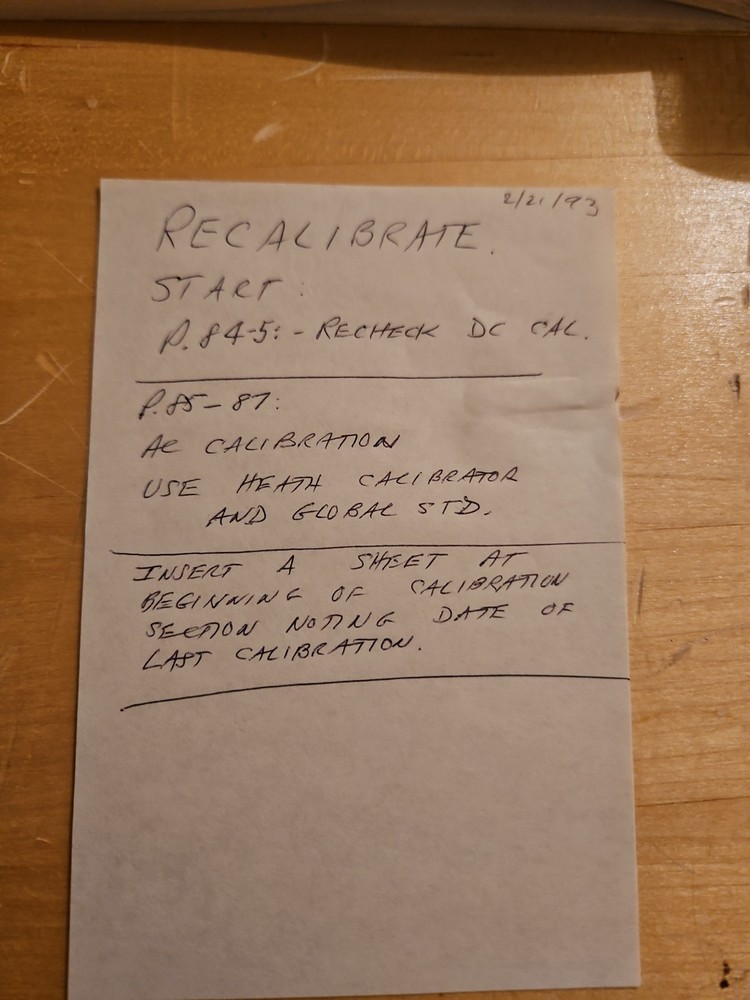 2/21/93
RECALIBRATE.
START:
P. 84-5: - RECHECK DC CAL.
P. 85-87:
AC CALIBRATION
USE HEATH CALIBRATOR
AND GLOBAL STD.
INSERT A SHEET AT
BEGINNING OF CALIBRATION
SECTION NOTING DATE OF
LAST CALIBRATION.